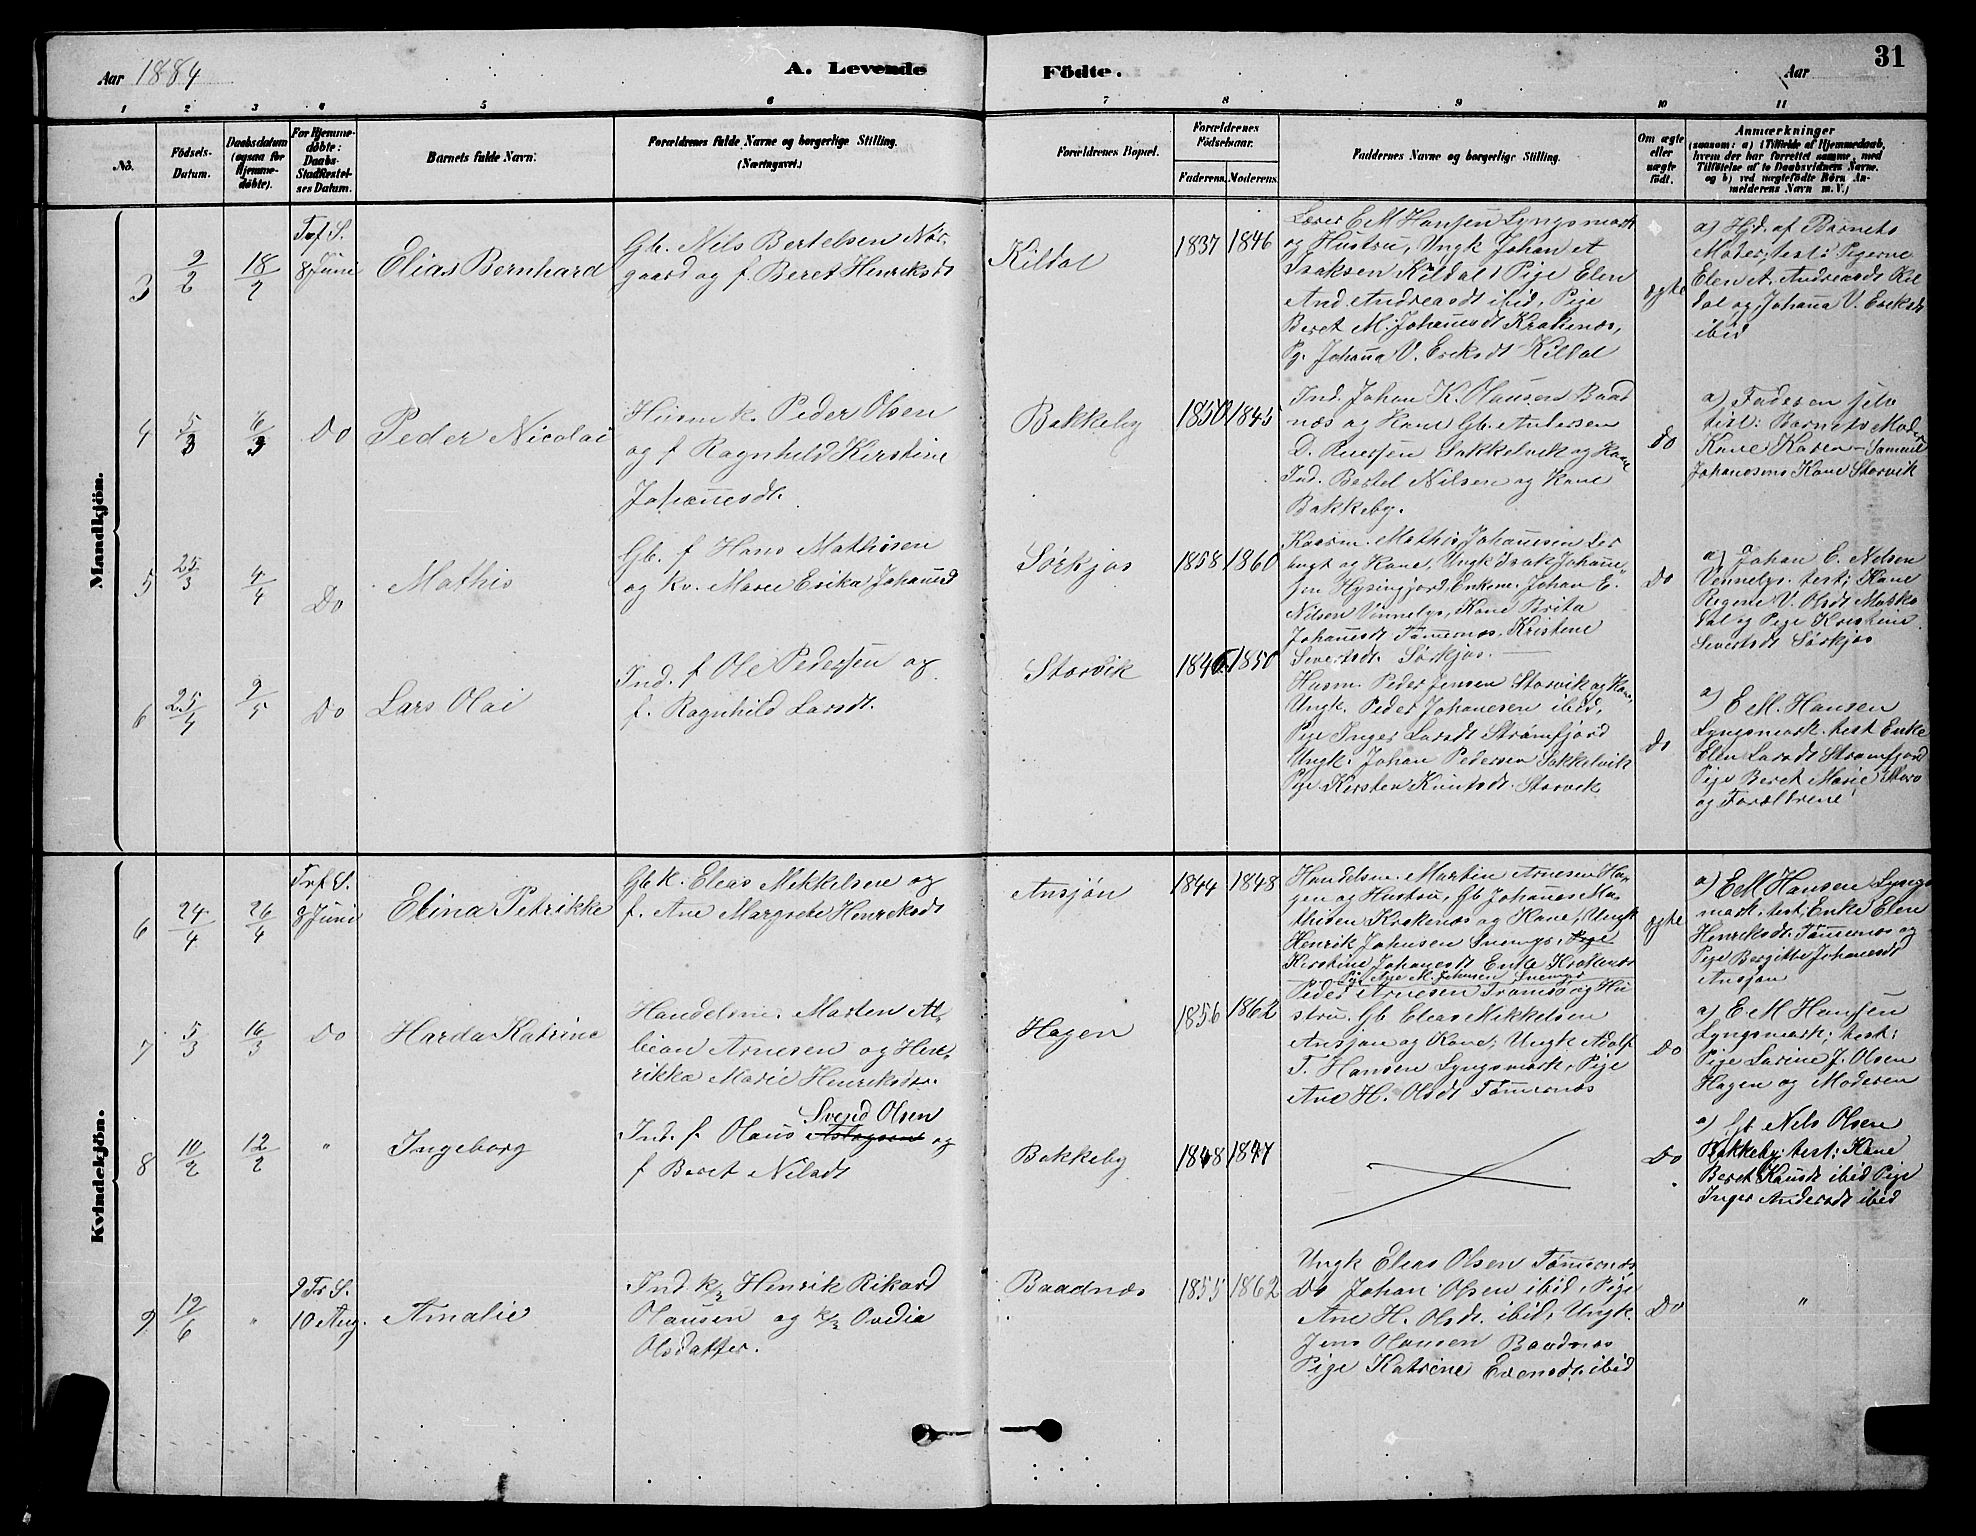 Aar 1884
A. Levende
Födte.
Aar
31
1
2
3
4
5
6
7
8
9
10
11
No.
Födsels-
Datum.
Daabsdatum
(ogsaa for
Hjemme-
døbte).
For Hjemme-
døbte:
Daabs-
Stadfæstel-
ses Datum.
Barnets fulde Navn.
Forældrenes fulde Navne og borgerlige Stilling.
(Næringsvei.)
Forældrenes Bopæl.
Forældrenes
Födselsaar.
Faderens.
Moderens.
Faddernes Navne og borgerlige Stilling.
Om ægte
eller
uægte
födt.
Anmærkninger
(saasom: a) i Tilfælde af Hjemmedaab,
hvem der har forrettet samme, med
Tilföielse af to Daabsvidners Navne.
og b) ved uægtefödte Börn An-
melderens Navn m. V.)
Mandkjön.
3
2/2
18/2
Trf. S.
8 Juni
Elias Bernhard
Gb. Nils Bertelsen Nör-
gaard og f. Beret Henriksdt
Kildal
1837
1846
Lærer E M Hansen Lyngsmark
og Hustru, Ungk Johan et
Isaksen Kildal, Pige Elen
And. Andreasdt ibid, Pige
Beret M. Johanesdt Krakenæs,
Pg. Johana V. Eriksdt Kildal
ægte
a) Hjd. af Barnets
Moder, test: Pigerne
Elen A. Andreasdt Kil
dal og Johana V. Eriksdt
ibid
4
5/3
6/3
Do
Peder Nicolai
Husm k. Peder Olsen
og f Ragnhild Kerstine
Johanesdt.
Bakkeby
1850
1845
Ind. Johan K. Olausen Baad
næs og Kane Gb. Andersen
Sakkelvik og Kane
Ind. Bertel Nilsen og Kane
Bakkeby.
Do
a) Faderen selv
test: Barnets Moder
Kane Karen Samuel
Johanesens Kane Storvik
5
25/3
4/4
Do
Mathis
Gb. f Hans Mathisen
og kv. Maree Erika Johanesd
Sörkjos
1858
1860
Mathis Johanesen
og Kane, Ungk Isak Johane-
sen Enkem. Johan E.
Nilsen Vinnelys, Kane Brita
Johanesdt Tömernæs, Kristene
Severtsdt. Sørkjos.
Do
a) Johan E. Nilsen
Vennelys. test; Kane
Regine V. Olsdt Matsko
dal og Pige Kristine
Severtsdt Sørkjos
6
25/4
2/5
Do
Lars Olai
Ind. f Ole Pedersen og
f. Ragnhild Larsdt.
Storvik
1846
1850
Husm. Peder Jensen Storvik og Kane,
Ungk. Peder Johanesen ibid,
Pige Inger Larsdt Strømfjord
Ungk. Johan Pedersen Sakkelvik
Pige Kersten Knutsdt. Storvik
Do
a) E M. Hansen
Lyngsmark. test Enke
Elen Larsdt Strömfjord
Pige Beret Marie
og Forældrene
Kvindekjön.
6
24/4
26/4
Trf S.
8 Juni
Elina Petrikke
Gb k. Eleas Mekkelsen og
f. Ane Margrete Henreksdt
Ansjøn
1844
1848
Handelsm. Martin Arnesen Ha-
gen og Hustru, Gb Johanes Ma-
thisen Krakenæs og Kane, Ungk
Henrik Johnsen Snemyr, Pige
Kerstine Johanesdt Enke Krakenæs
Pige Ane M. Johnsen Snemyr
ægte
a) E M Hansen Lyngs
mark, test, Enke Elen
Henriksdt. Tömernæs og
Pige Bergitte Johanesdt
Ansjøn
7
5/3
16/3
Do
Harda Katrine
Handelsm. Marten Al-
bian Arnesen og Hen-
rikka Marie Henriksdt.
Hagen
1856
1862
Peder Arnesen Tromsø og Hu-
stru. Gb Eleas Mikkelsen
Ansjøn og Kane, Ungk Adolf
T. Hansen Lyngsmark, Pige
Ane H. Olsdt Tömernæs
Do
a) E M Hansen
Lyngsmark; test:
Pige Larine J. Olsen
Hagen og Moderen
8
10/2
12/2
"
Ingeborg
Svend Olsen
Ind. f. Olaus Aslagsen og
f Beret Nilsdt
Bakkeby
1848
1847
Do
a) Gb Nils Olsen
Bakkeby test: Kane
Beret Knusdt ibid Pige
Inger Andersdt ibid
9
12/6
"
9 Tr S.
10 Aug.
Amalie
Ind. k/n Henrik Rikard
Olausen og k/n Ovedia
Olsdatter.
Baadnæs
1855
1862
Ungk Elias Olsen Tömernæs
Do Johan Olsen ibid, Pige
Ane H. Olsdt. ibid, Ungk.
Jens Olausen Baadnæs
Pige Katrine Evensdt. ibid
Do
"